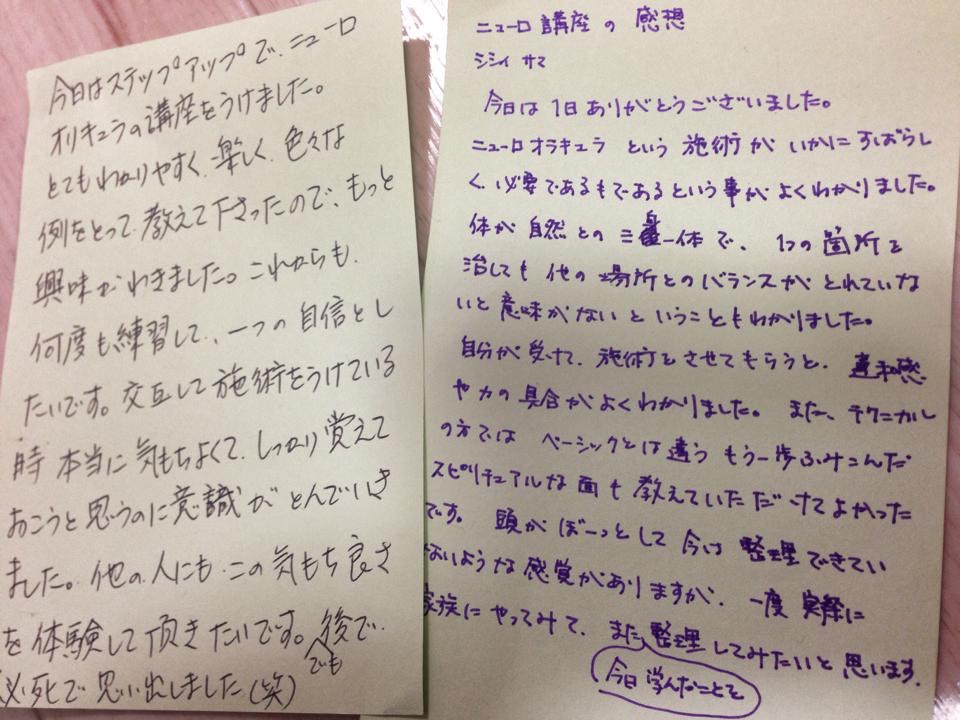 今日はステップアップで、ニューロ
オリキュラの講座をうけました。
とてもわかりやすく、楽しく、色々な
例をとって教えて下さったので、もっと
興味がわきました。これからも、
何度も練習して、一つの自信とし
たいです。交互して施術をうけている
時 本当に気もちよくて、しっかり覚えて
おこうと思うのに意識がとんでいき
ました。他の人にも この気もち良さ
を体験して頂きたいです。後で、
でも
必死で思い出しました(笑)
ニューロ 講座 の 感想
シシィ サマ
今日は 1日 ありがとうございました。
ニューロオラキュラ という 施術が いかにすばらし
く 必要であるもであるという事が よくわかりました。
体が 自然 との 三一体で、 1つの 箇所を
治しても 他の 場所とのバランスが とれていな
いと意味がない と いうこともわかりました。
自分が受けて、施術をさせてもらうと、 違和感
や力の具合がよくわかりました。 また、テクニカル
の方では ベーシックとは違う もう一歩ふみこんだ
スピリチュアルな面も 教えていただけてよかった
です。 頭が ぼーっとして 今は 整理できてい
ないような感覚がありますが、 一度 実際に
家族にやってみて、 また 整理してみたいと思います。
今日 学んだことを